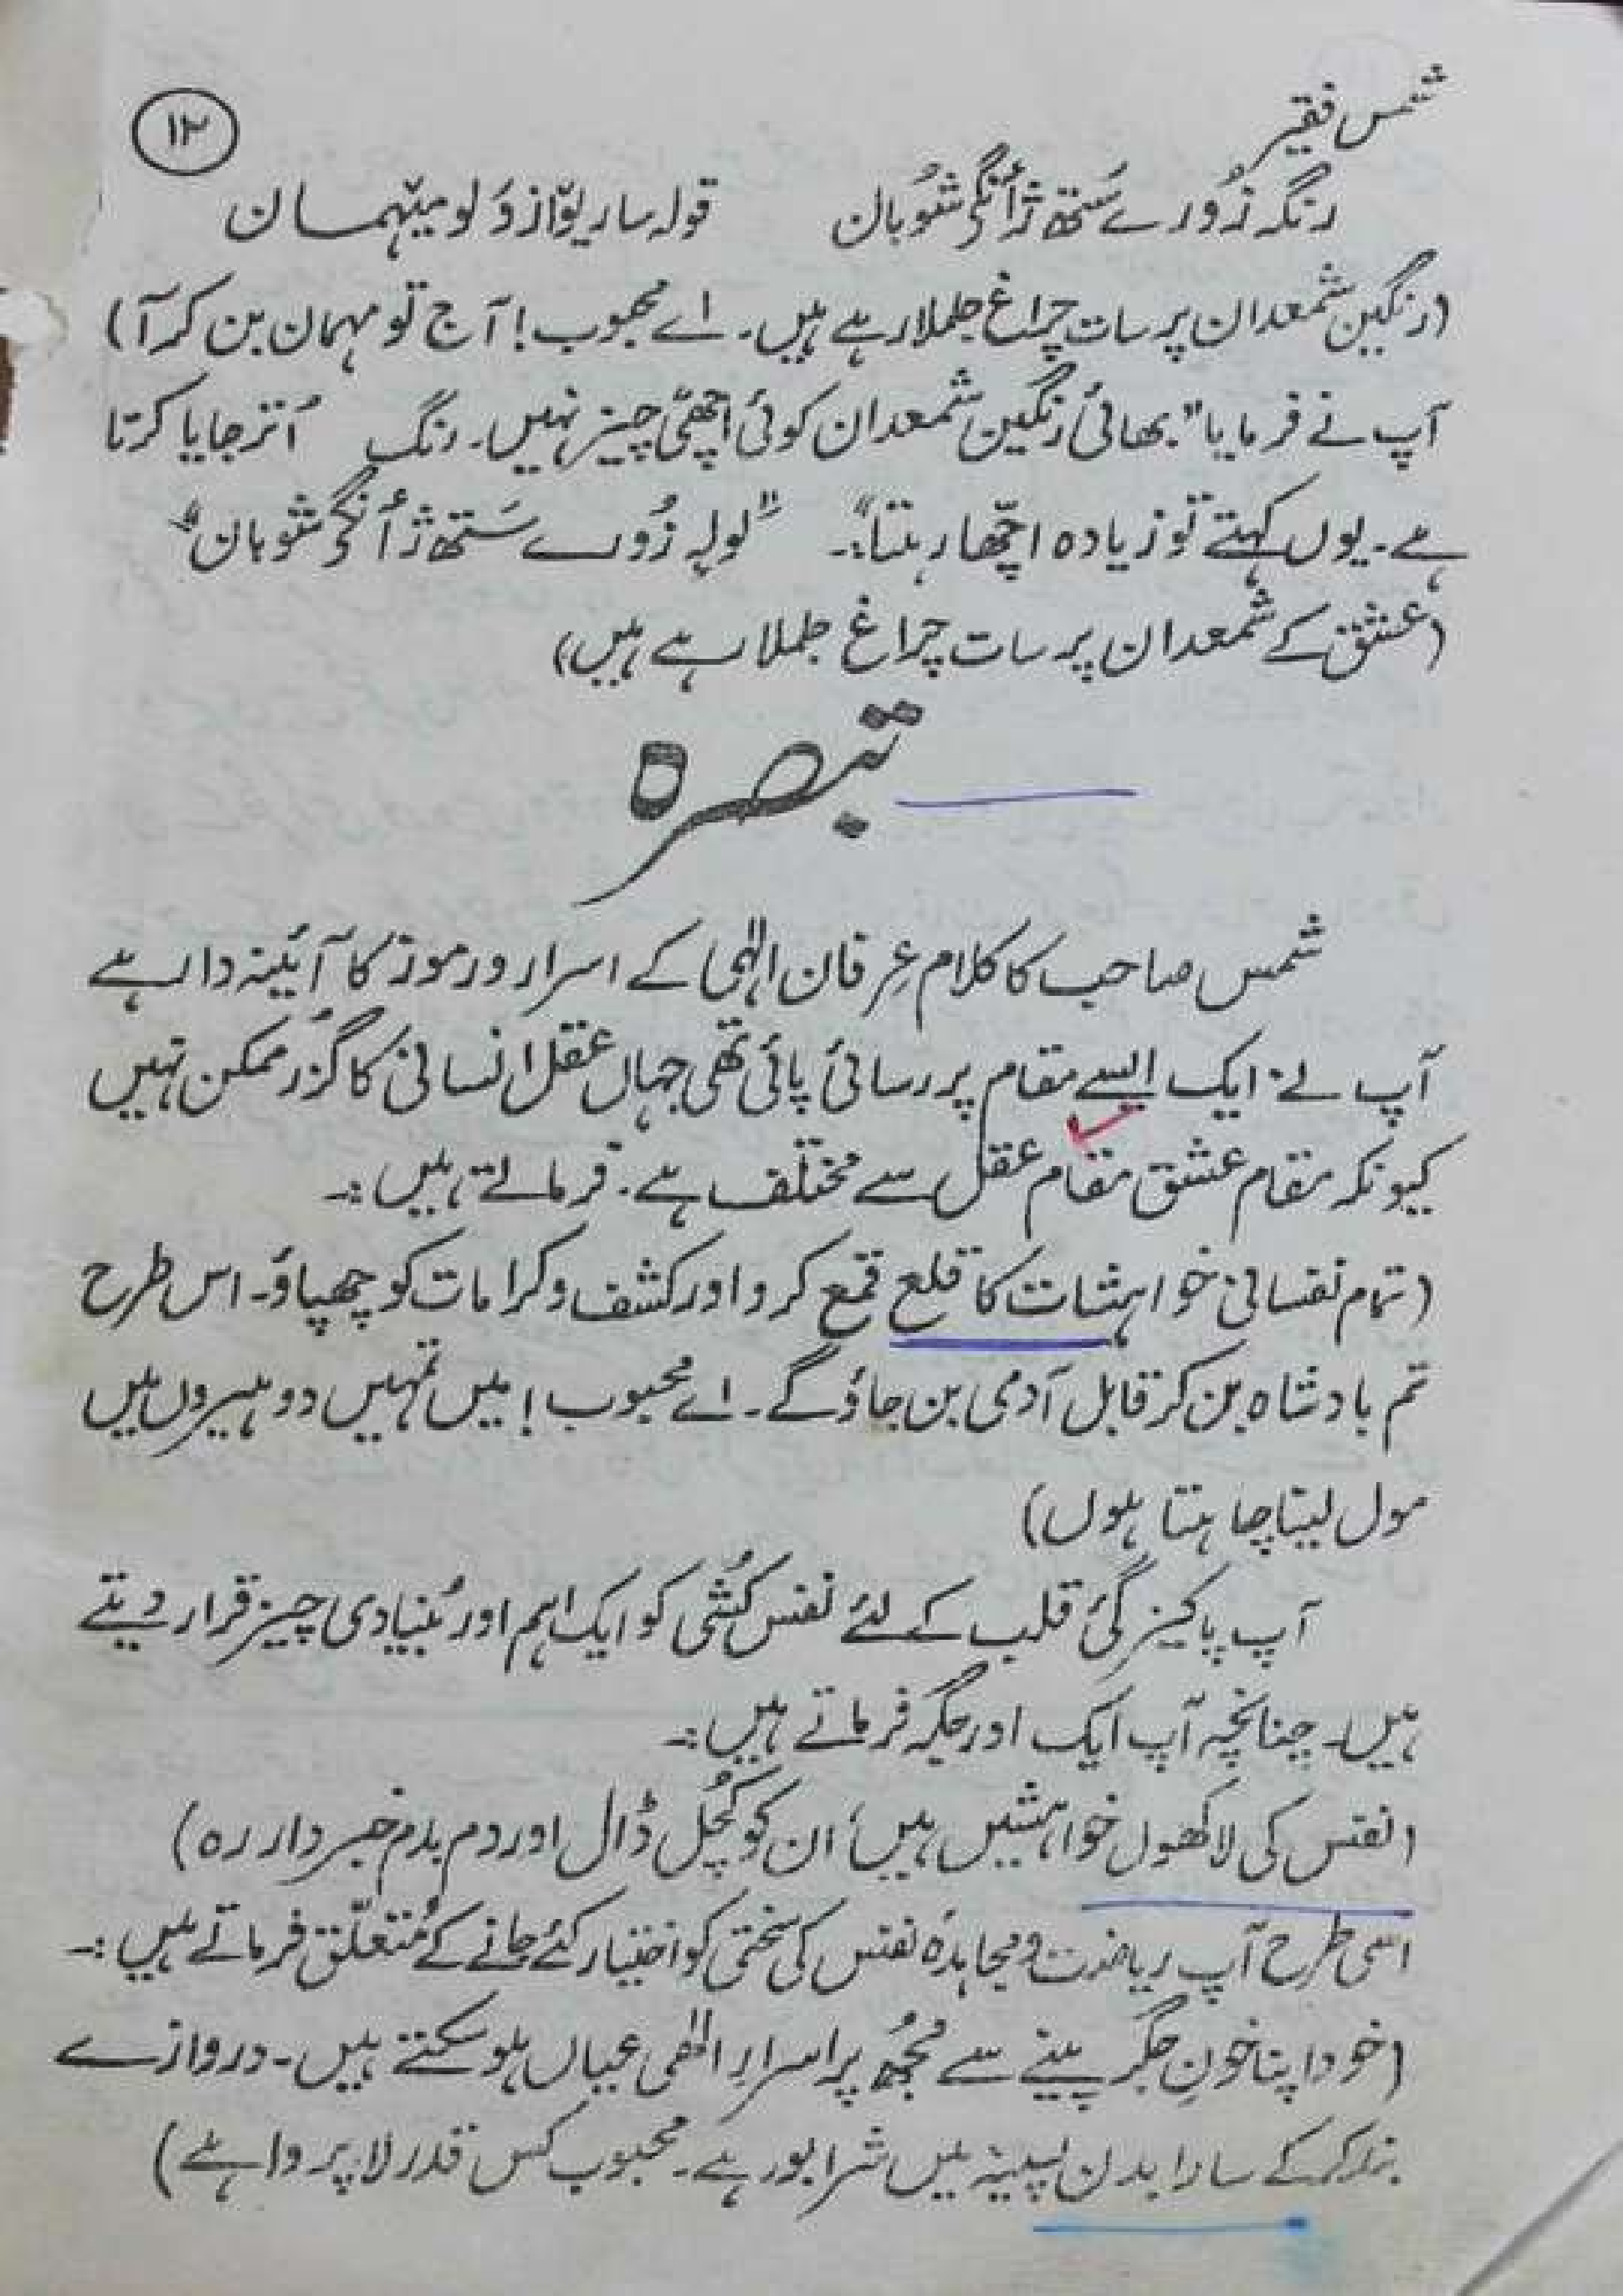 شمس فقیر
۱۲
رنگہ زُورے سَتھ ژٲنگۍ شوٗبان قولہ سار یوٚ از وَلو میٚہمان
(رنگین شمعدان پر سات چراغ جلملا رہے ہیں۔ اے محبوب! آج تو مہمان بن کر آ)
آپ نے فرمایا "بھائی رنگین شمعدان کوئی اچھّی چیز نہیں۔ رنگ اُتر جایا کرتا
ہے۔ یوں کہتے تو زیادہ اچّھا رہتا":۔ "لولہٕ زُورے سَتھ ژٲنگۍ شوبان"
(عشق کے شمعدان پر سات چراغ جلملا رہے ہیں)
تبصرہ
شمس صاحب کا کلام عِرفان الٰہی کے اسرار و رموز کا آئینہ دار ہے
آپ نے ایک ایسے مقام پر رسائی پائی تھی جہاں عقل انسانی کا گزر ممکن نہیں
کیونکہ مقام عشق مقام عقل سے مختلف ہے۔ فرماتے ہیں:۔
(تمام نفسانی خواہشات کا قلع قمع کرو اور کشف و کرامات کو چھپاؤ۔ اس طرح
تم بادشاہ بن کر قابل آدمی بن جاؤ گے۔ اے محبوب! میں تمہیں دو ہیروں میں
مول لینا چاہتا ہوں)
آپ پاکیزگئ قلب کے لئے نفس کُشی کو ایک اہم اور بُنیادی چیز قرار دیتے
ہیں۔ چنانچہ آپ ایک اور جگہ فرماتے ہیں:۔
(نفس کی لاکھوں خواہشیں ہیں، ان کو کُچل ڈال اور دم بدم خبردار رہ)
اسی طرح آپ ریاضت و مجاہدۂ نفس کی سختی کو اختیار کئے جانے کے مُتعلّق فرماتے ہیں:۔
(خود اپنا خونِ جگر پینے سے مُجھ پر اسرارِ الٰھی عیاں ہو سکتے ہیں۔ دروازے
بند کرکے سارا بدن پسینہ میں شرابور ہے۔ محبوب کس قدر لاپرواہے)